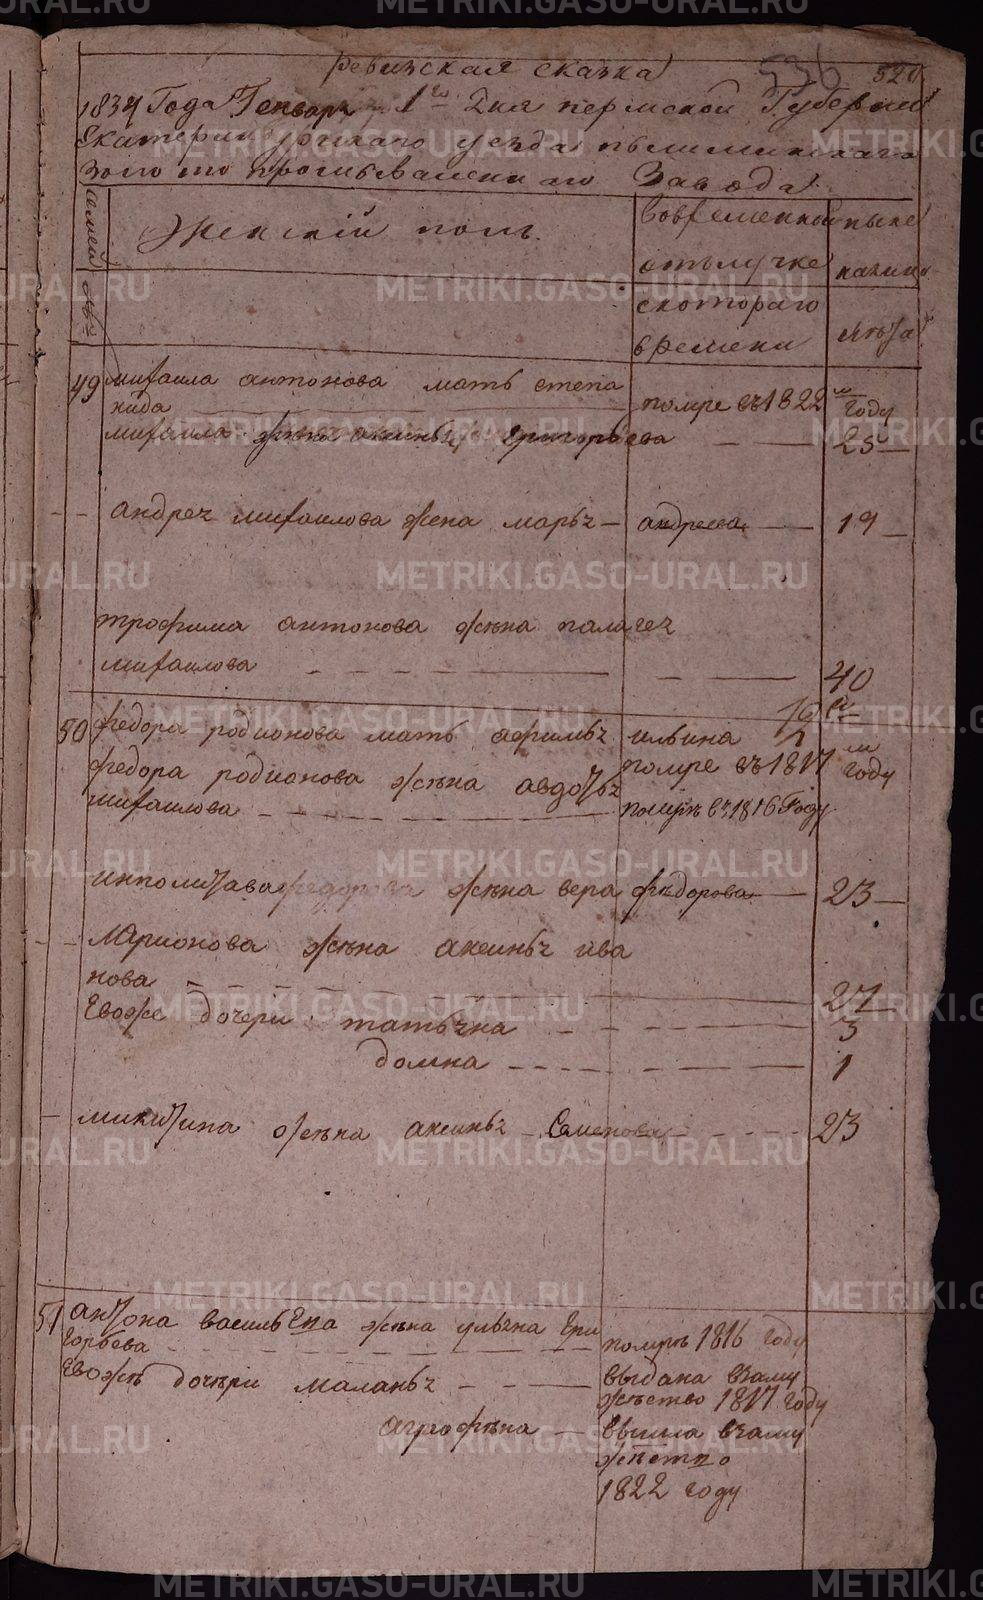 Ревизская сказка
536 520
1834 Года Генваря 1го Дня пермской Губернии
Екатеринбургского уезда пышминскаго
Золотопромываленнаго Завода
Семей №
Женский полъ
Вовременной отълучке скотораго времени
ныне налицо
лѣта
49 михаила антонова мать степа
нида — помре въ 1822м году
михаила жѣна аксинья григорьева — 25
андрея михаилова жена марья — андреева — 19
трофима антонова жѣна палагея
михаилова — 40
50 федора родионова мать афимья ильина
помре въ 1817м году
федора родионова жѣна авдотья
михаилова — помърѣ въ 1816 Году
ипполитава федорова жѣна вера федорова — 23
Ларионова жѣна аксинья ива
нова — 27
Евоже дочери татьяна — 3
домна — 1
микитина жѣна аксинья Семенова — 23
51 антона васильева жѣна ульяна Гри
горьева — помърѣ 1816 году
Евожѣ дочѣри маланья — выдана взаму
жѣство 1817 году
аграфѣна — вышла взаму
жѣство
1822 году
METRIKI.GASO-URAL.RU